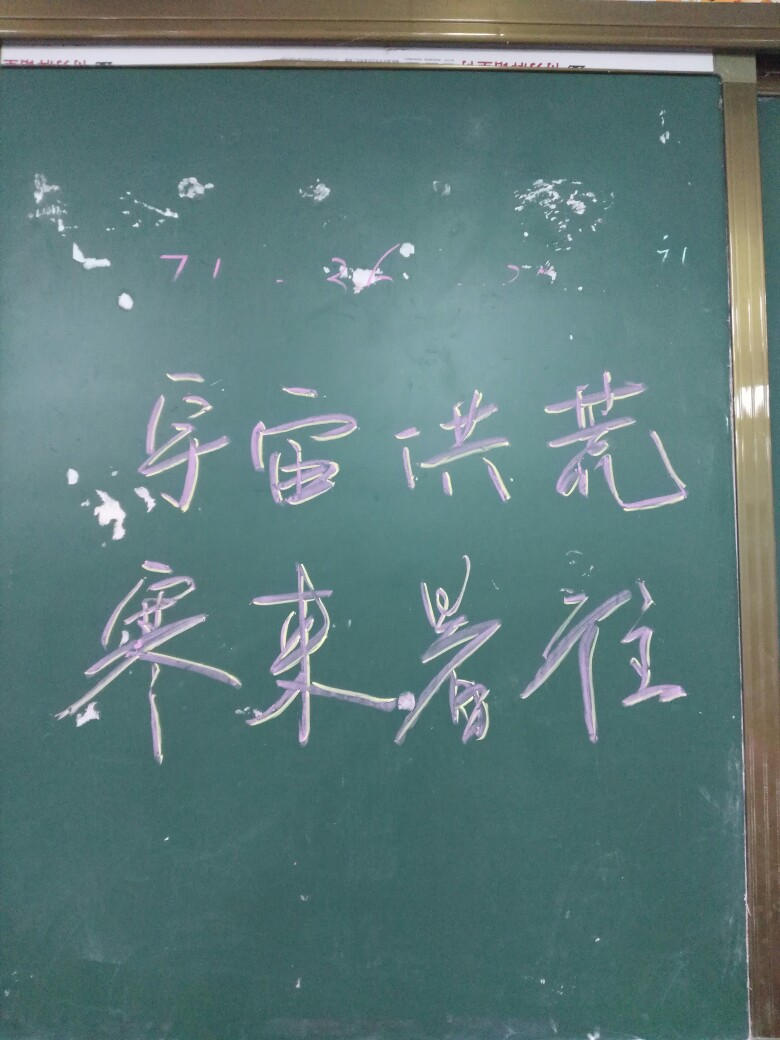 71
71
宇宙洪荒
寒来暑往